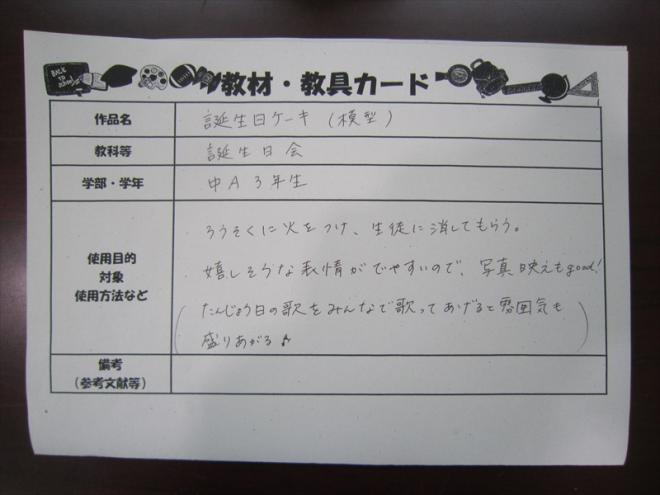 BACK TO School
教材・教具カード
作品名 誕生日ケーキ（模型）
教科等 誕生日会
学部・学年 中A3年生
使用目的
対象
使用方法など
ろうそくに火をつけ、生徒に消してもらう。
嬉しそうな表情がでやすいので、写真映えもgood!
（たんじょう日の歌をみんなで歌ってあげると雰囲気も
盛りあがる♪）
備考
（参考文献等）